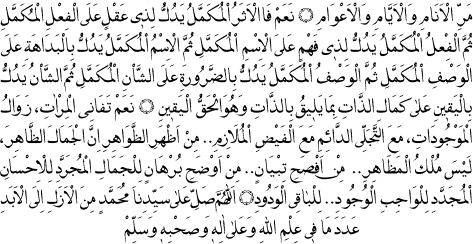 مَرِّ الْاَنَامِ وَالْاَيَّامِ وَالْاَعْوَامِ ۞ نَعَمْ فَالْاَثَرُ الْمُكَمَّلُ يَدُلُّ لِذِى عَقْلٍ عَلَى الْفِعْلِ الْمُكَمَّلِ
ثُمَّ الْفِعْلُ الْمُكَمَّلُ يَدُلُّ لِذِى فَهْمٍ عَلَى الْاِسْمِ الْمُكَمَّلِ ثُمَّ الْاِسْمُ الْمُكَمَّلُ يَدُلُّ بِالْبَدَاهَةِ عَلَى
الْوَصْفِ الْمُكَمَّلِ ثُمَّ الْوَصْفُ الْمُكَمَّلُ يَدُلُّ بِالضَّرُورَةِ عَلَى الشَّأْنِ الْمُكَمَّلِ ثُمَّ الشَّأْنُ يَدُلُّ
بِالْيَقِينِ عَلَى كَمَالِ الذَّاتِ بِمَا يَلِيقُ بِالذَّاتِ وَهُوَ الْحَقُّ الْيَقِينُ ۞ نَعَمْ تَفَانِى الْمِرْاٰتِ، زَوَالُ
الْمَوْجُودَاتِ، مَعَ التَّجَلِّى الدَّائِمِ مَعَ الْفَيْضِ الْمُلَازِمِ.. مِنْ اَظْهَرِ الظَّوَاهِرِ اِنَّ الْجَمَالَ الظَّاهِرَ،
لَيْسَ مُلْكَ الْمَظَاهِرِ.. مِنْ اَفْصَحِ تِبْيَانٍ.. مِنْ اَوْضَحِ بُرْهَانٍ لِلْجَمَالِ الْمُجَرَّدِ لِلْاِحْسَانِ
الْمُجَدَّدِ لِلْوَاجِبِ الْوُجُودِ.. لِلْبَاقِى الْوَدُودِ ۞ اَللّٰهُمَّ صَلِّ عَلَى سَيِّدِنَا مُحَمَّدٍ مِنَ الْاَزَلِ اِلَى الْاَبَدِ
عَدَدَ مَا فِى عِلْمِ اللّٰهِ وَعَلَى اٰلِهِ وَصَحْبِهِ وَسَلِّمْ